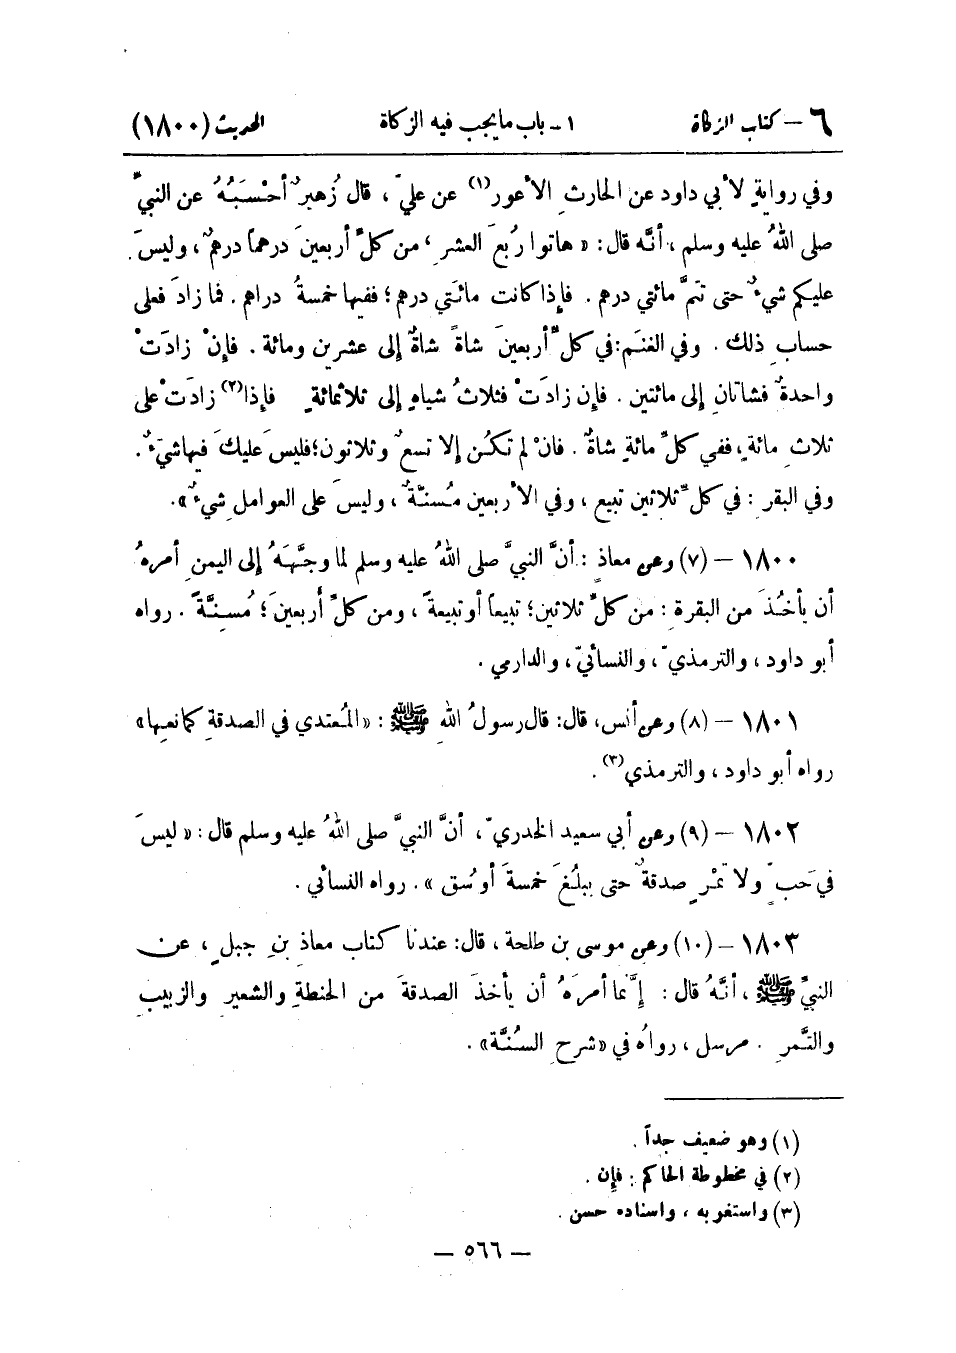 ٦ – كتاب الزكاة ١ - باب مايجب فيه الزكاة الحديث (١٨٠٠)
وفي روايةٍ لأبي داود عن الحارثِ الأعور(١) عن عليّ ، قال زُهيرٌ أحْسَبُهُ عن النبيِّ
صلى اللهُ عليه وسلم ، أنَّه قال : « هاتوا رُبعَ العشرِ ، من كلِّ أربعينَ درهماً درهمٌ ، وليسَ
عليكم شيءٌ حتى تتمَّ مائتي درهم . فإذا كانت مائتي درهم ؛ ففيها خمسةُ دراهم . فما زادَ فعلى
حسابِ ذلك . وفي الغنَم : في كلِّ أربعينَ شاةً شاةٌ إلى عشرين ومائة . فإنْ زادَتْ
واحدةٌ فشاتانِ إلى مائتين . فإن زادَتْ فثلاثُ شياهٍ إلى ثلاثمائةٍ فإذا(٢) زادَتْ على
ثلاثِ مائةٍ ، ففي كلِّ مائةٍ شاةٌ . فانْ لم تكُن إلا تسعٌ وثلاثون ؛ فليسَ عليكَ فيها شيءٌ .
وفي البقرِ : في كلِّ ثلاثين تبيع ، وفي الأربعين مُسنَّةٌ ، وليسَ على العوامل شيءٌ » .
١٨٠٠ – (٧) وعن معاذٍ : أنَّ النبيَّ صلى اللهُ عليه وسلم لما وجَّهَهُ إلى اليمنِ أمرهُ
أن يأخُذَ من البقرةِ : من كلِّ ثلاثين ؛ تبيعاً أو تبيعةً ، ومن كلِّ أربعينَ ؛ مُسنَّةً . رواه
أبو داود ، والترمذيّ ، والنسائيّ ، والدارمي .
١٨٠١ – (٨) وعن أنس، قال: قال رسولُ اللهِ ﷺ : «المُعتدي في الصدقةِ كمانعها»
رواه أبو داود ، والترمذي(٣) .
١٨٠٢ – (٩) وعن أبي سعيد الخدريّ ، أنَّ النبيَّ صلى اللهُ عليه وسلم قال : « ليسَ
في حَبٍّ ولا تمْرٍ صدقةٌ حتى يبلُغَ خمسةَ أوسُق » . رواه النسائي .
١٨٠٣ – (١٠) وعن موسى بن طلحة ، قال: عندنا كتاب معاذِ بنِ جبلٍ ، عن
النبيِّ ﷺ ، أنَّهُ قال : إنَّما أمرَهُ أن يأخذَ الصدقةَ من الحنطةِ والشعيرِ والزبيبِ
والتَّمرِ . مرسل ، رواهُ في «شرحِ السُنَّة» .
(١) وهو ضعيف جداً .
(٢) في مخطوطة الحاكم : فإن .
(٣) واستغربه ، واسناده حسن .
— ٥٦٦ —